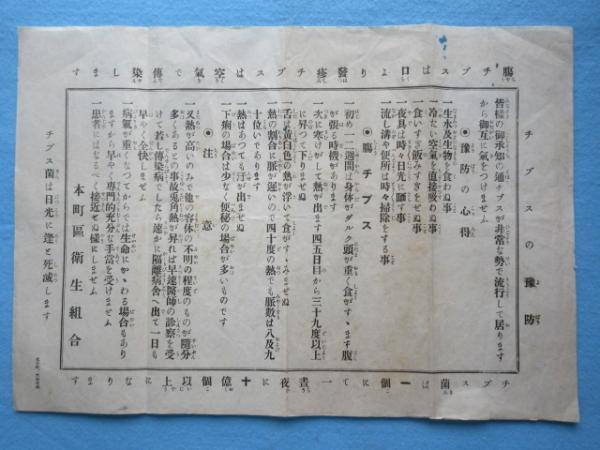 チブスの豫防
腸チブスは口より發疹チブスは空氣で傳染します
皆樣の御承知の通チブスが非常な勢で流行して居ります
から御互に氣をつけませふ
◉豫防の心得
一生水及生物を食わぬ事
一冷たい空氣を直接吸わぬ事
一食いすぎ飯みすぎをせぬ事
一夜具は時々日光に曬す事
一流し溝や便所は時々掃除をする事
◉腸チブス
一初め一二週間は身体がダルク頭が重く食がすゝまず腹
が張る時機があります
一次に寒けがして熱が出ます四五日目から三十九度以上
に昇つて下りませぬ
一舌は黃白色の熱が浮いて食がすゝみませぬ
一熱の割合に脈が遲いので四十度の熱でも脈數は八及九
十位いであります
一熱はあつても汗が出ませぬ
一下痢の場合は少なく便秘の場合が多いものです
◉注意
一又熱が高いのみで他の容体の不明の程度のものが隨分
多くあるとの事故兎角熱が昇れば早速醫師の診察を受
けて若し傳染病でしたら速かに隔離病舍へ出て一日も
早やく全快しませふ
一病氣が重くなつてからでは生命にかゝわる場合もあり
ますから早やく專門的充分な手當を受けませふ
一患者にはなるべく接近せぬ樣にしませふ
本町區衛生組合
チブス菌は一個にて一晝夜に十億個以上になります
チブス菌は日光に逢と死滅します